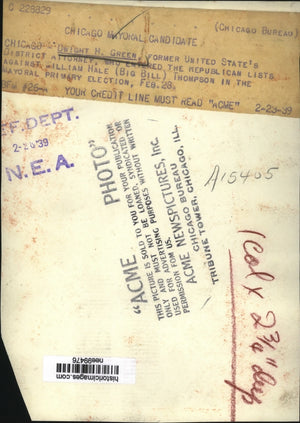 C 228329 (CHICAGO BUREAU)
CHICAGO MAYORAL CANDIDATE
CHICAGO - DWIGHT H. GREEN, FORMER UNITED STATE'S
DISTRICT ATTORNEY, WHO THE REPUBLICAN LISTS
AGAINST WILLIAM HALE (BIG BILL) THOMPSON IN THE
MAYORAL PRIMARY ELECTION, FEB. 28.
YOUR CREDIT LINE MUST READ "ACME" 2-23-39
F DEPT.
2-26-39
N.E.A.
A15405
"ACME PHOTO"
THIS PICTURE IS SOLD TO YOU FOR YOUR PUBLICATION
ONLY AND MUST NOT BE LOANED, SYNDICATED OR
USED FOR ADVERTISING PURPOSES WITHOUT WRITTEN
PERMISSION FROM US.
ACME NEWSPICTURES, Inc.
CHICAGO BUREAU
TRIBUNE TOWER, CHICAGO, ILL.
1 Col x 2 3/4" deep
historicimages.com
nee99476